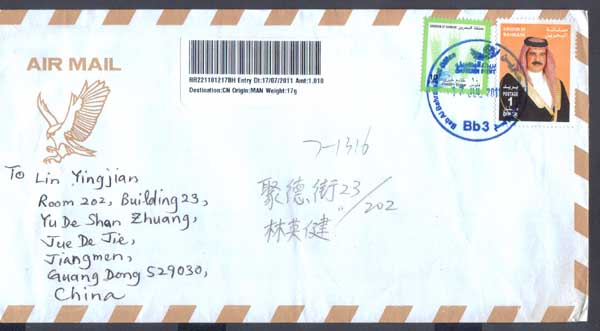 AIR MAIL
RR221101217BH Entry Dt:17/07/2011 Amt:1.010
Destination:CN Origin:MAN Weight:17g
KINGDOM OF BAHRAIN
مملكة البحرين
KINGDOM OF BAHRAIN
POSTAGE
1
DINAR
Bab Al Bahrain
Bb3
To Lin Yingjian
Room 202, Building 23,
Yu De Shan Zhuang,
Jue De Jie,
Jiangmen,
Guang Dong 529030,
China
7-1316
聚德街23/202
林英健